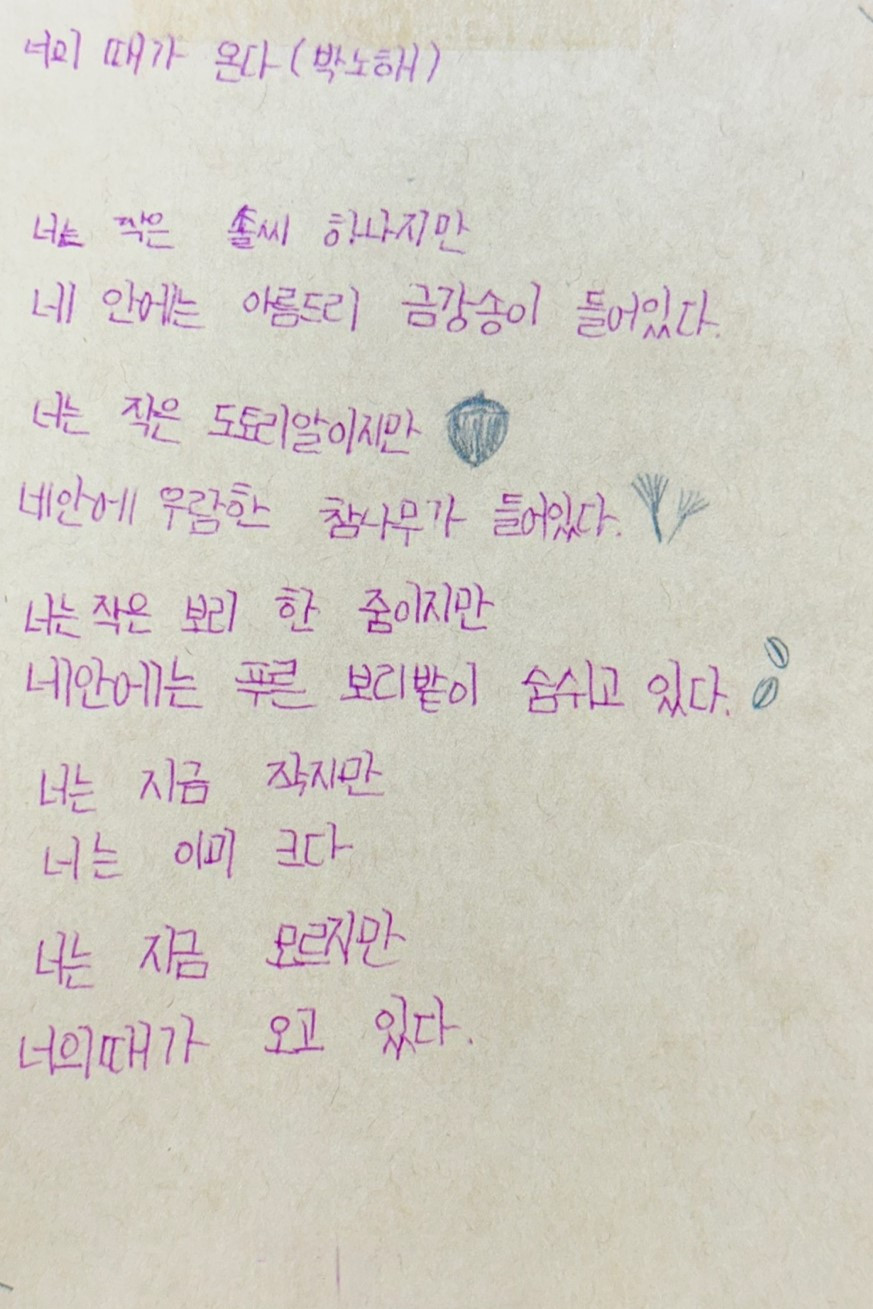 너의 때가 온다 (박노해)
너는 작은 솔씨 하나지만
네 안에는 아름드리 금강송이 들어있다.
너는 작은 도토리알이지만
네안에 우람한 참나무가 들어있다.
너는 작은 보리 한 줌이지만
네안에는 푸른 보리밭이 숨쉬고 있다.
너는 지금 작지만
너는 이미 크다
너는 지금 모르지만
너의때가 오고 있다.